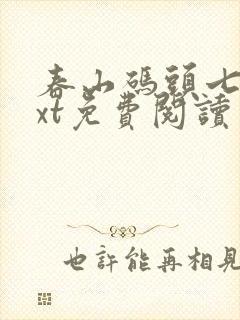 春山碼頭七
xt免費閱讀
也許能再相見